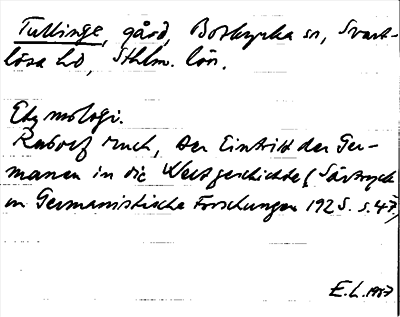 Tullinge, gård, Botkyrka sn, Svart-
lösa hd, Sthlm. län.
Etymologi.
Rudolf Much, Der Eintritt der Ger-
manen in die Weltgeschichte (Särtryck
ur Germanistische Forschungen 1925. s. 47.)
E. L. 1957